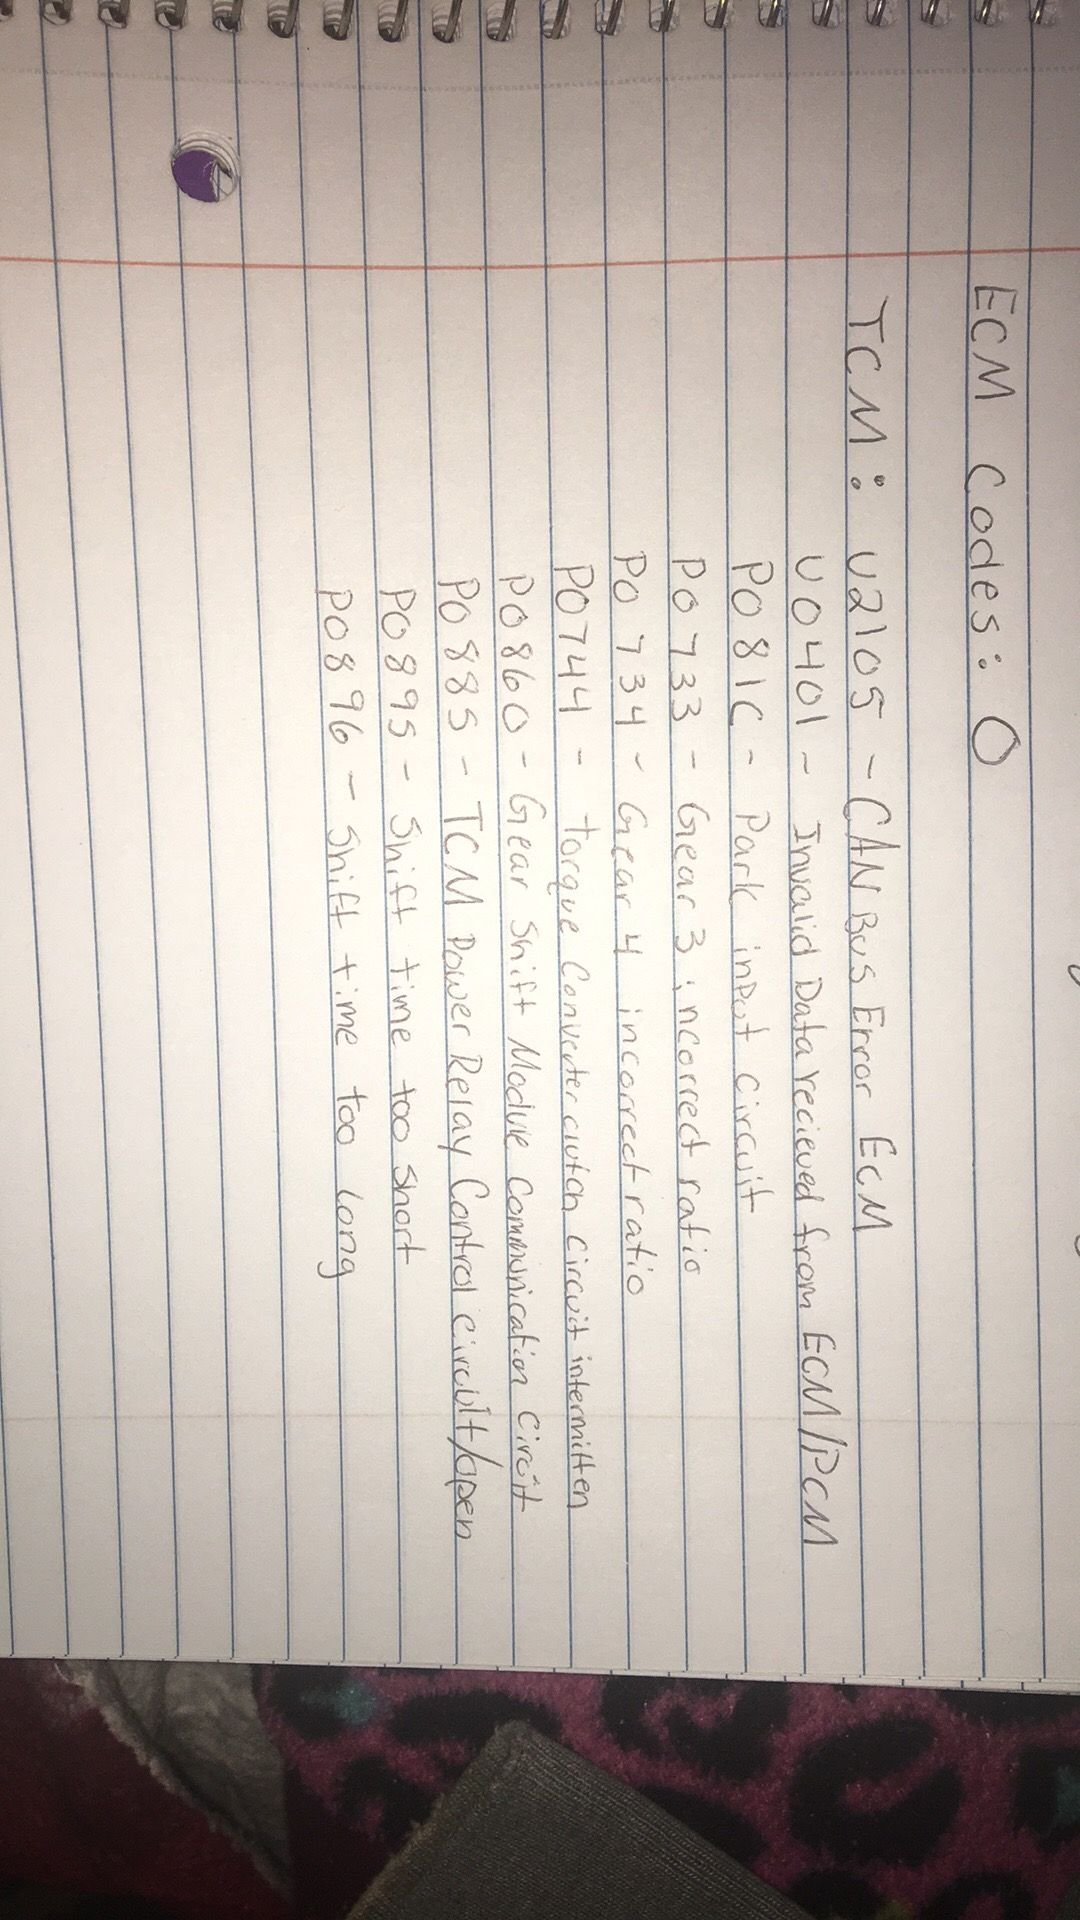 ECM Codes: 0
TCM: U2105 - CAN Bus Error ECM
U0401 - Invalid Data recieved from ECM/PCM
P081C - Park input circuit
P0733 - Gear 3 incorrect ratio
P0734 - Gear 4 incorrect ratio
P0744 - torque Converter clutch circuit intermitten
P0860 - Gear Shift Module Communication Circit
P0885 - TCM Power Relay Control circuit/open
P0895 - Shift time too short
P0896 - Shift time too long